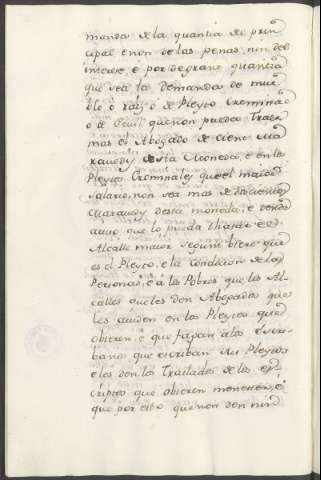 manda de la quantia de prin
cipal e non de las penas, nin del
interese, é por de grave quantia
que sea la demanda de mue
ble ó raiz ó de Pleyto Creminal
ó de Cevil que non pueda traer
mas el Abogado de cient Ma
ravedis desta Moneda, e en los
Pleytos Creminales que el maior
salario non sea mas de docientos
Maravedis desta moneda, e
que lo pueda thaser el
Alcalle maior segunt biere que
es el Pleyto, e la Condicion de las
Personas, é a los Pobres que los Al
calles que les den Abogados que
les aiuden en los Pleytos que
obieren, é que fagan a los Escri
banos que escriban sus Pleytos
e les den los Traslados de los es
criptos que obieren menester, é
que por esto que non den nin